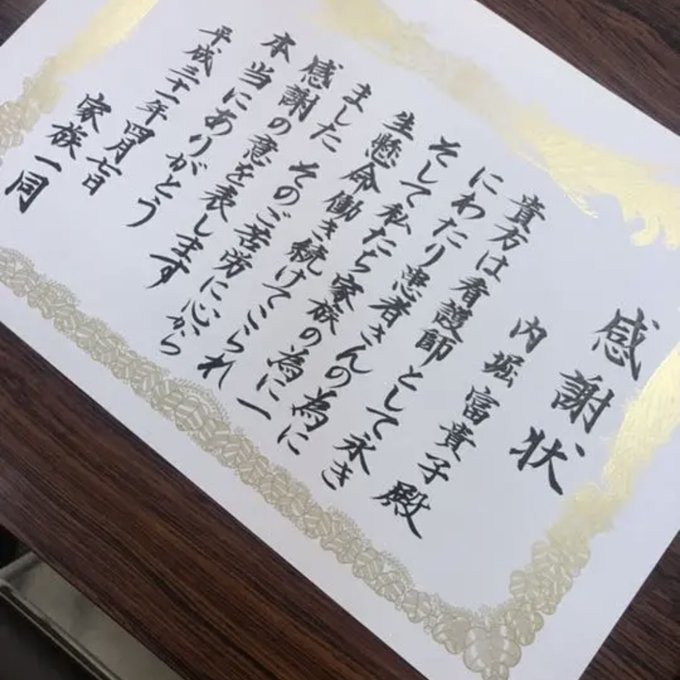 感謝状
内堀富貴子殿
貴方は看護師として永き
にわたり患者さんの為に
そして私たち家族の為に一
生懸命働き続けてこられ
ました そのご苦労に心から
感謝の意を表します
本当にありがとう
平成三十一年四月七日
家族一同